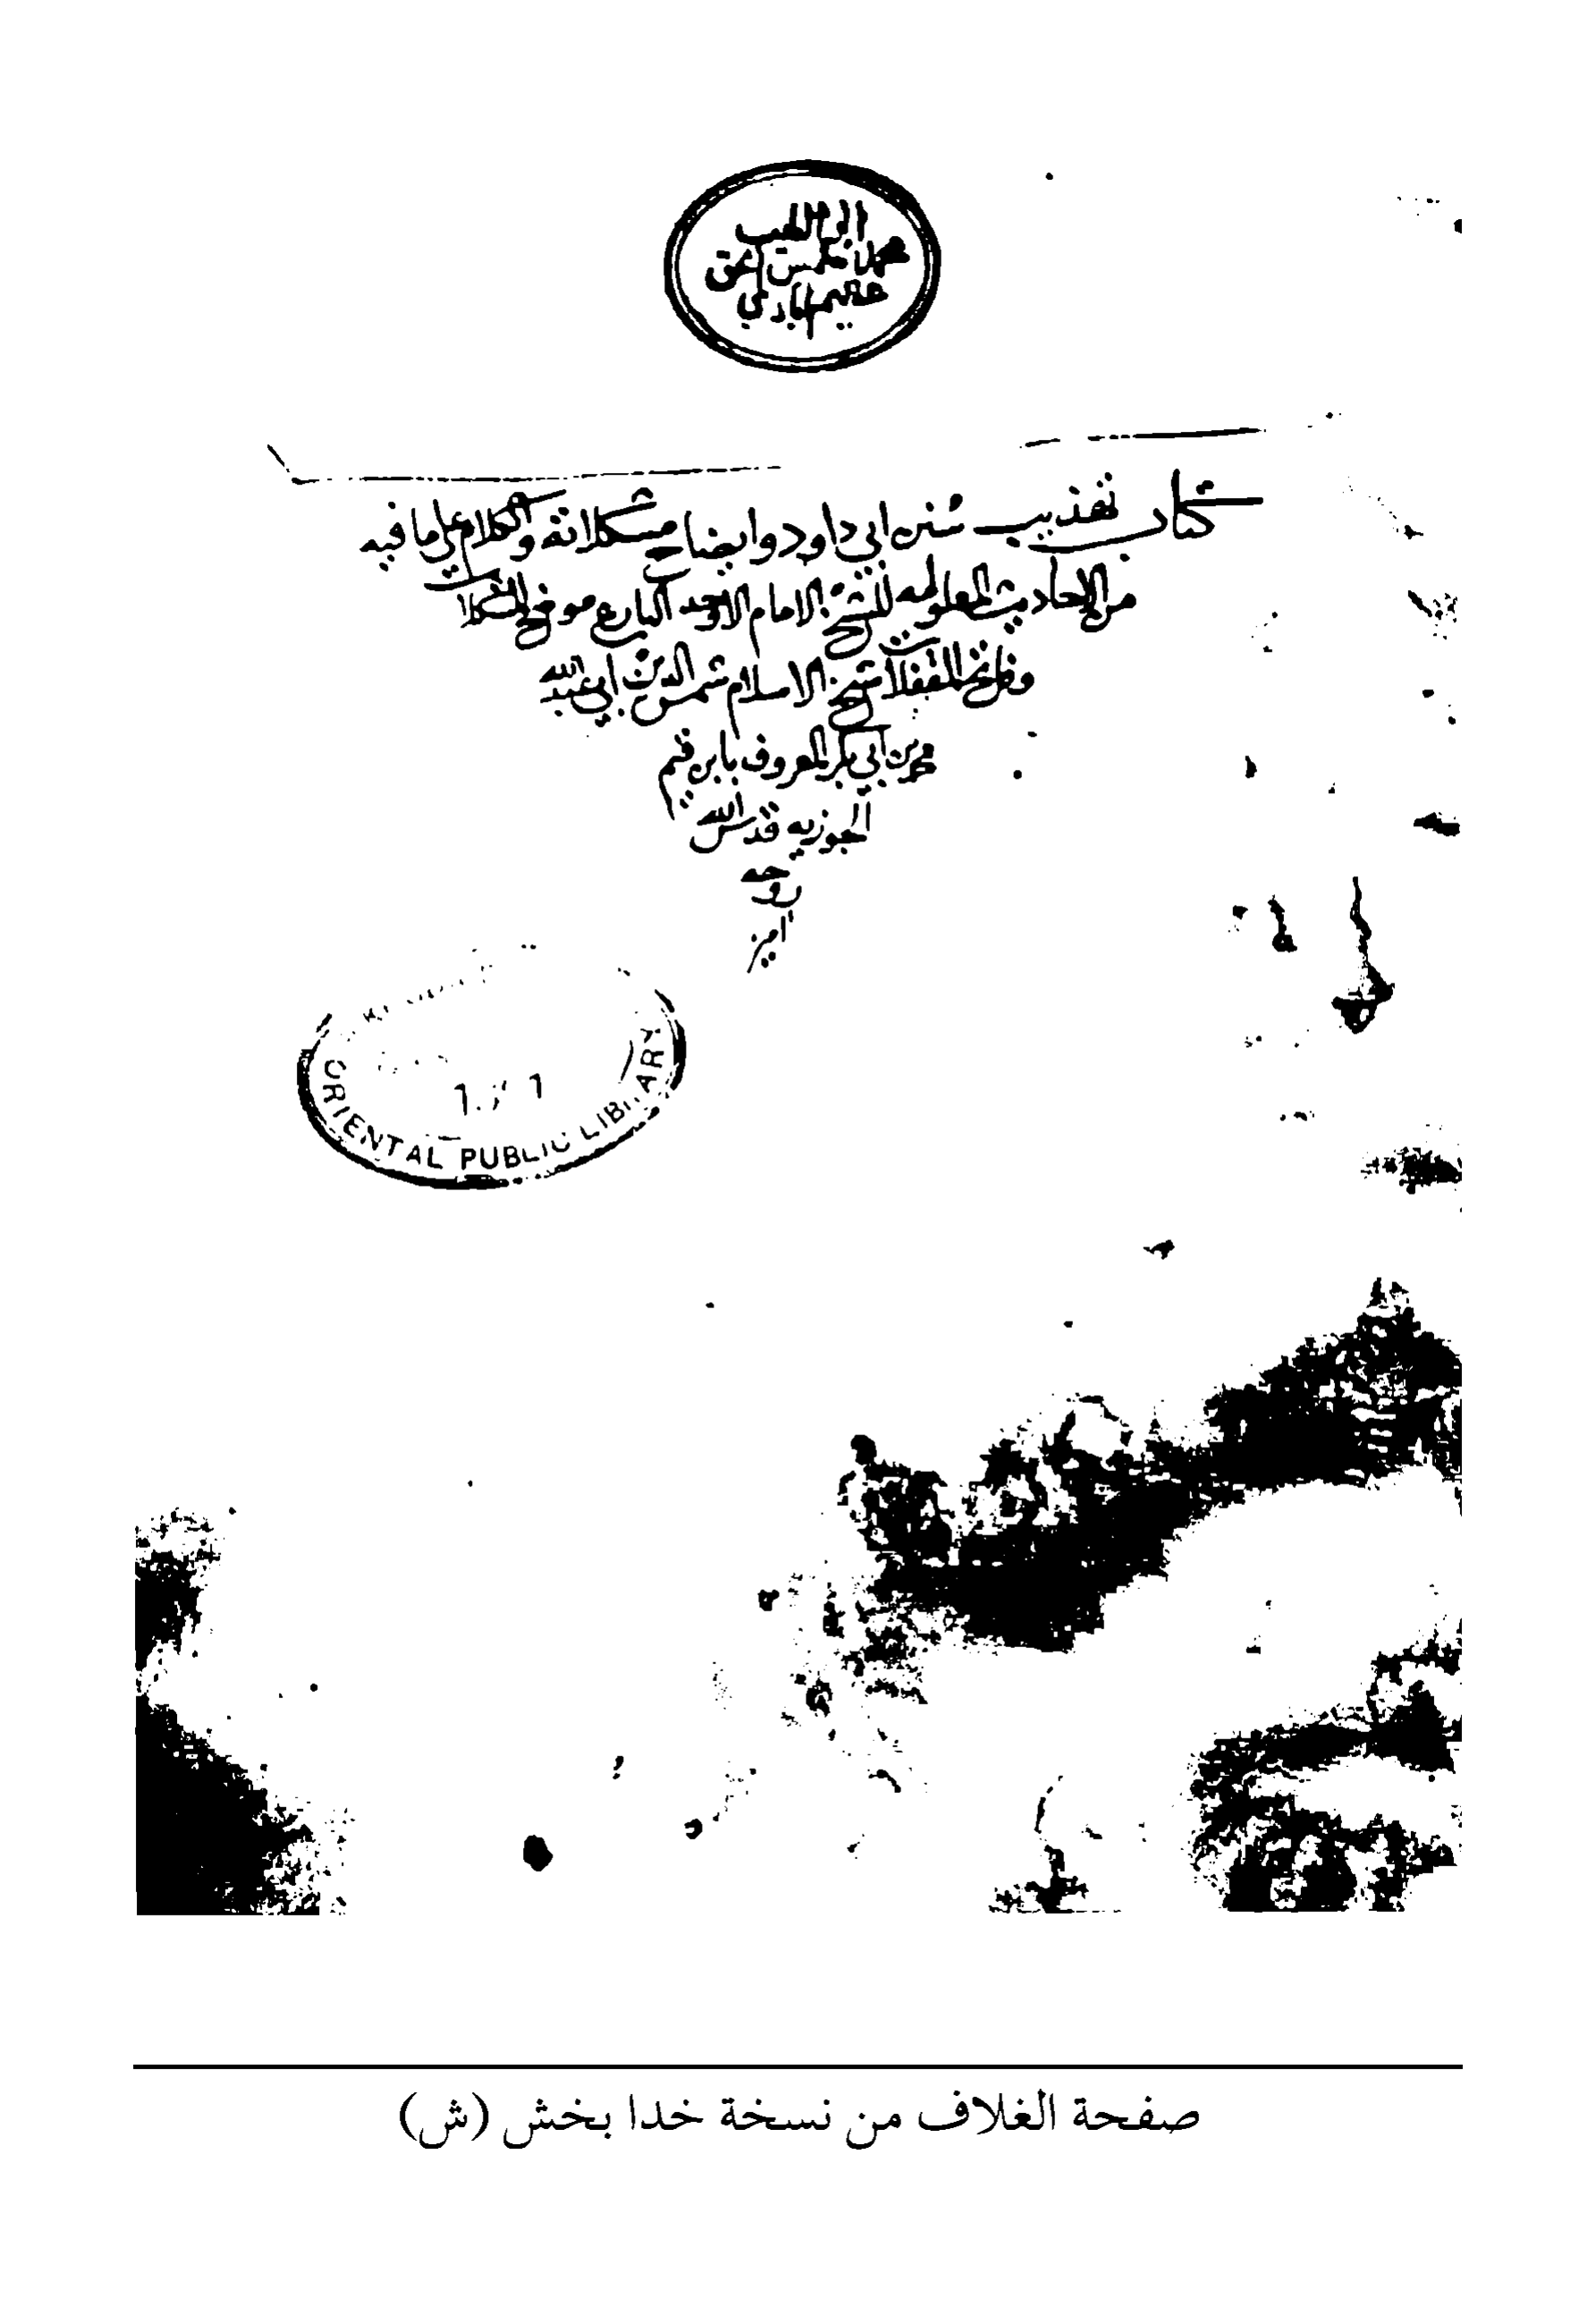 ابو الطيب
محمد شمس الحق
عظيم ابادي
كتاب تهذيب سنن ابي داود وايضاح مشكلاته والكلام على ما فيه
من الاحاديث المعلولة للشيخ الامام الاوحد البارع موضح المشكلات
وفاتح المقفلات شيخ الاسلام شمس الدين ابي عبد الله
محمد بن ابي بكر المعروف بابن قيم
الجوزيه قدس الله
روحه
امين
ORIENTAL PUBLIC LIBRARY
صفحة الغلاف من نسخة خدا بخش (ش)